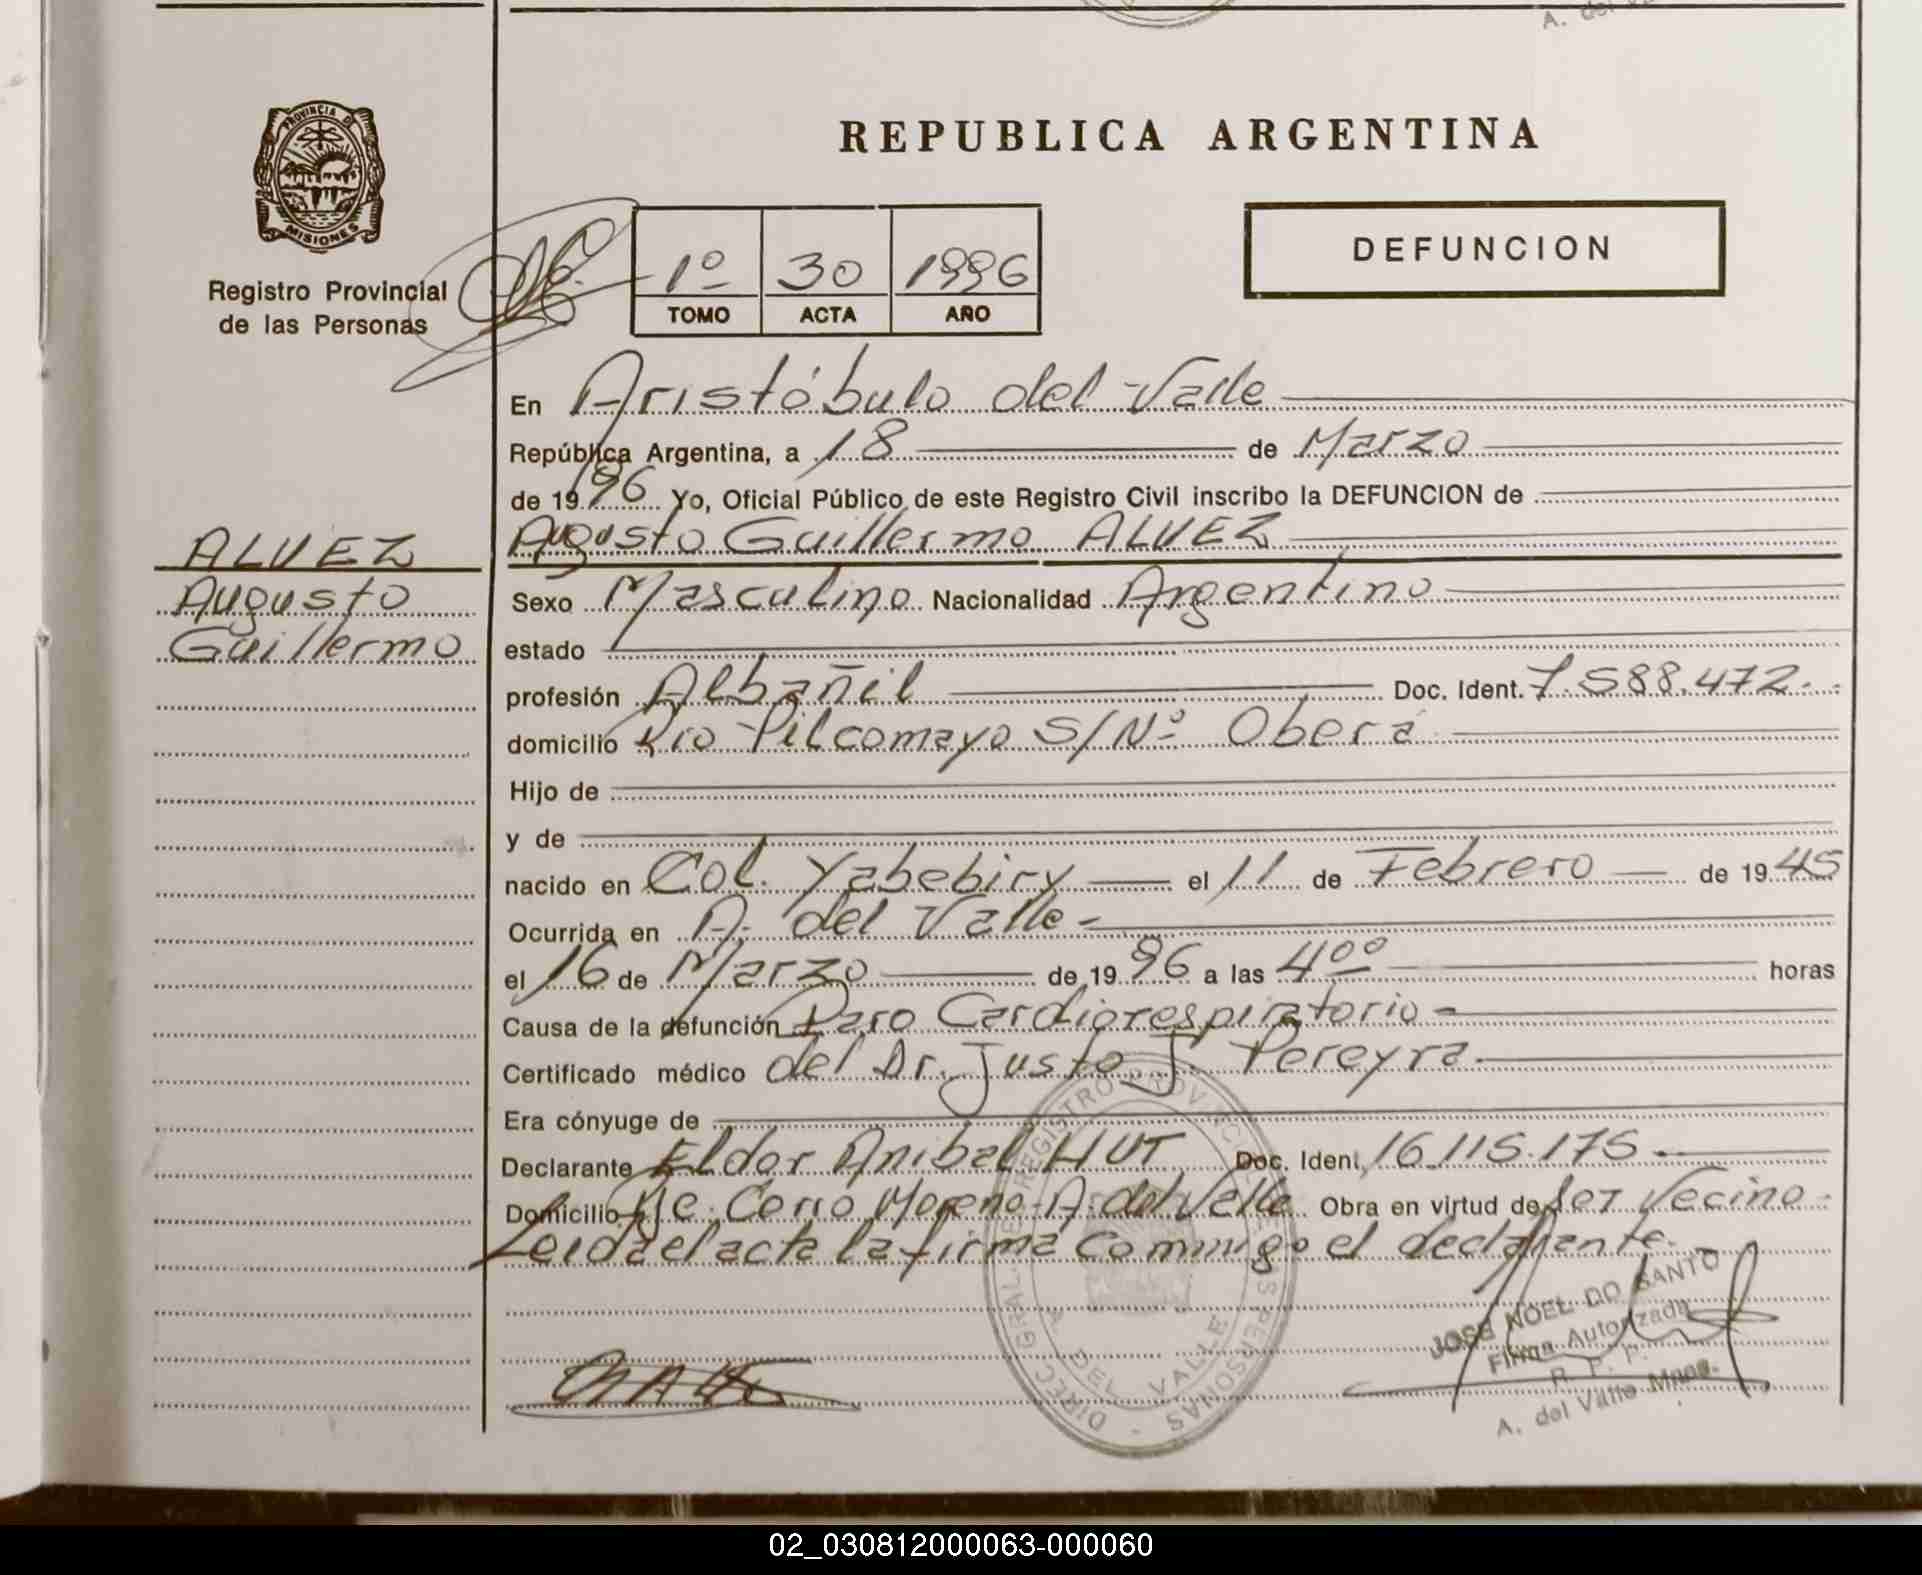 A. del
PROVINCIA DE
MISIONES
Registro Provincial
de las Personas
REPUBLICA ARGENTINA
1º 30 1996
TOMO ACTA AÑO
DEFUNCION
En Aristóbulo del Valle
República Argentina, a 18 de Marzo
de 1996 Yo, Oficial Público de este Registro Civil inscribo la DEFUNCION de
ALVEZ
Augusto
Guillermo
Augusto Guillermo ALVEZ
Sexo Masculino Nacionalidad Argentino
estado
profesión Albañil Doc. Ident. 7.588.472.
domicilio Río Pilcomayo S/Nº Oberá
Hijo de
y de
nacido en Col. Yabebiry el 11 de Febrero de 1945
Ocurrida en A. del Valle
el 16 de Marzo de 1996 a las 4ºº horas
Causa de la defunción Paro Cardiorespiratorio
Certificado médico del Dr. Justo J. Pereyra.
Era cónyuge de
Declarante Eldor Anibal HUT Doc. Ident. 16.115.175.
Domicilio Cerro Moreno-A. del Valle Obra en virtud de ser Vecino
Leida el acta la firma commigo el declarante.
DIREC. GRAL. DEL REGISTRO PROVINCIAL DE LAS PERSONAS - A. DEL VALLE
JOSE NOEL DO SANTO
Firma Autorizada
R. P. P.
A. del Valle Mnes.
02_030812000063-000060